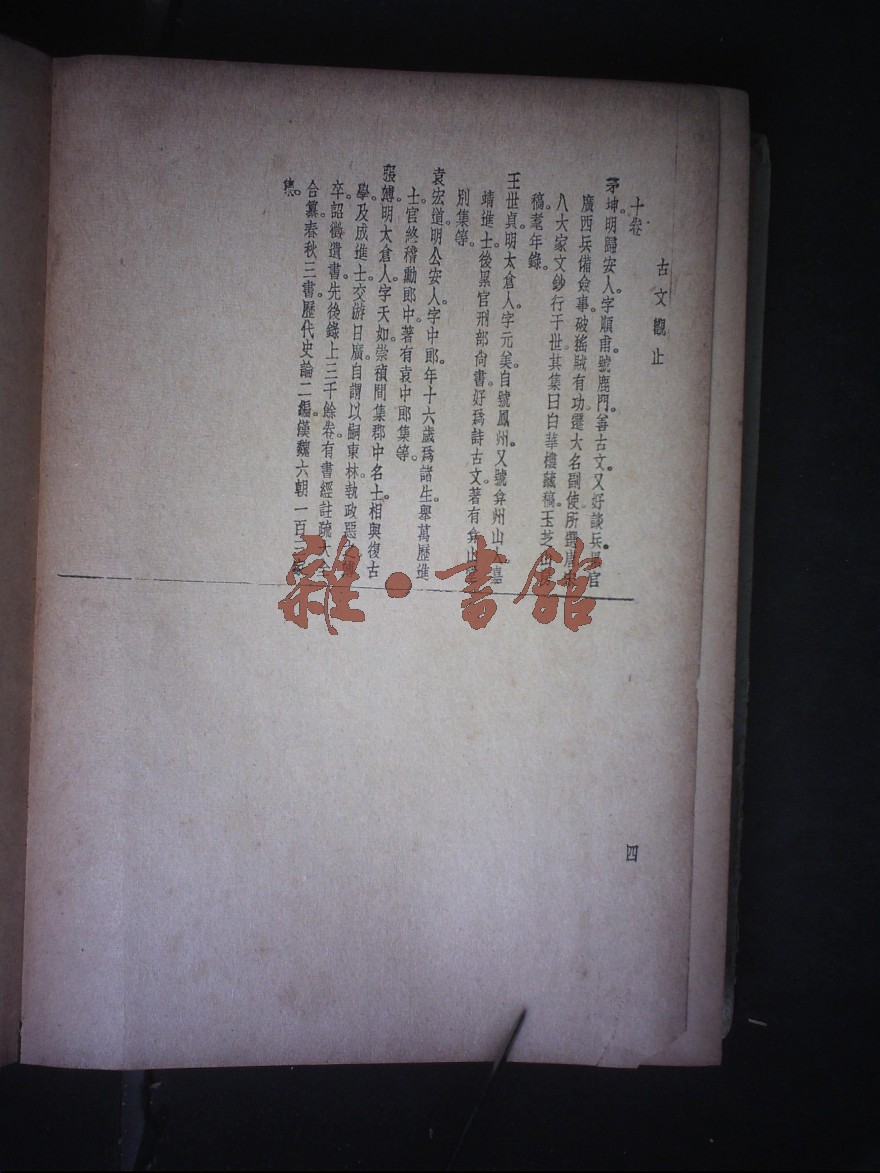 古文觀止
四
十卷。
茅坤。明歸安人。字順甫。號鹿門。善古文。又好談兵。累官
廣西兵備僉事。破猺賊有功。遷大名副使。所選唐宋
八大家文鈔行于世。其集曰白華樓藏稿。玉芝山
稿。耄年錄。
王世貞。明太倉人。字元美。自號鳳州。又號弇州山人。嘉
靖進士。後累官刑部尚書。好爲詩古文。著有弇山堂
別集等。
袁宏道。明公安人。字中郎。年十六歲爲諸生。舉萬歷進
士。官終稽勳郎中。著有袁中郎集等。
張溥。明太倉人。字天如。崇禎間集郡中名士。相與復古
學。及成進士。交游日廣。自謂以嗣東林。執政惡之。
卒。詔徵遺書。先後錄上三千餘卷。有書經註疏大全
合纂。春秋三書。歷代史論二編。漢魏六朝一百三家
集。
雜·書館